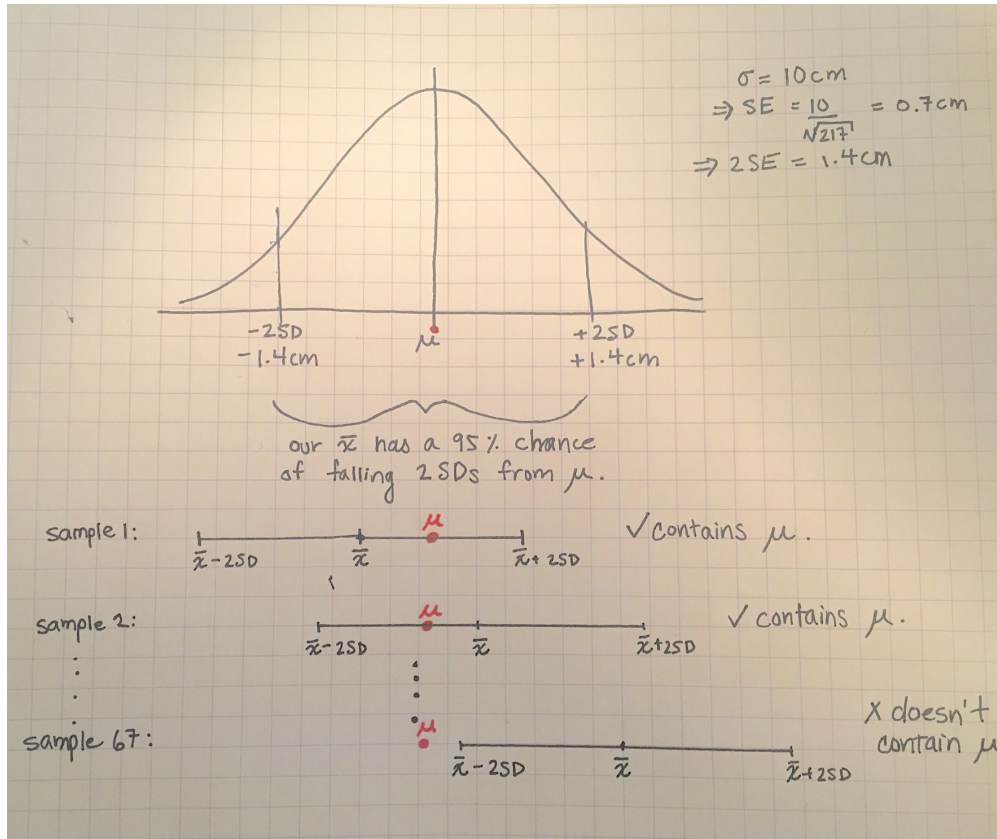 σ = 10cm
⇒ SE = 10/√217 = 0.7cm
⇒ 2SE = 1.4cm
-2SD
-1.4cm
μ
+2SD
+1.4cm
our x̄ has a 95% chance
of falling 2SDs from μ.
sample 1:
μ
x̄-2SD
x̄
x̄+2SD
✓contains μ.
sample 2:
μ
x̄-2SD
x̄
x̄+2SD
✓ contains μ.
sample 67:
μ
x̄-2SD
x̄
x̄+2SD
X doesn't
contain μ